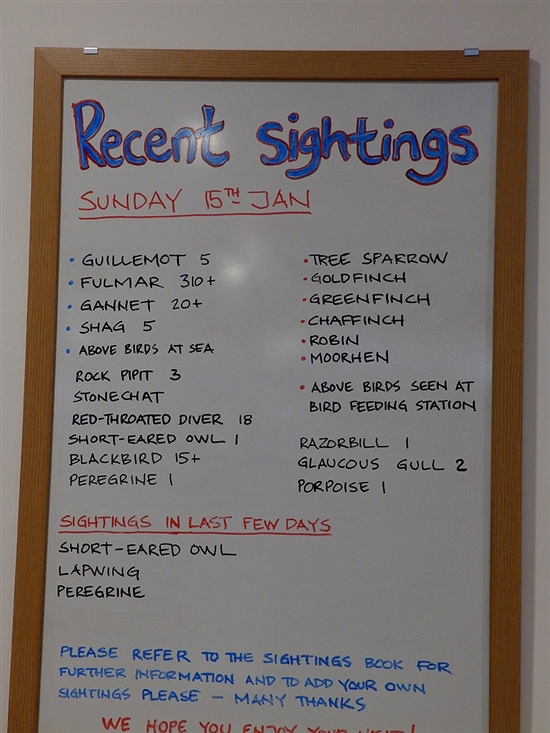 Recent sightings
SUNDAY 15TH JAN
• GUILLEMOT 5
• FULMAR 310+
• GANNET 20+
• SHAG 5
• ABOVE BIRDS AT SEA
ROCK PIPIT 3
STONECHAT
RED-THROATED DIVER 18
SHORT-EARED OWL 1
BLACKBIRD 15+
PEREGRINE 1
• TREE SPARROW
• GOLDFINCH
• GREENFINCH
• CHAFFINCH
• ROBIN
• MOORHEN
• ABOVE BIRDS SEEN AT
BIRD FEEDING STATION
RAZORBILL 1
GLAUCOUS GULL 2
PORPOISE 1
SIGHTINGS IN LAST FEW DAYS
SHORT-EARED OWL
LAPWING
PEREGRINE
PLEASE REFER TO THE SIGHTINGS BOOK FOR
FURTHER INFORMATION AND TO ADD YOUR OWN
SIGHTINGS PLEASE – MANY THANKS
WE HOPE YOU ENJOY YOUR VISIT!